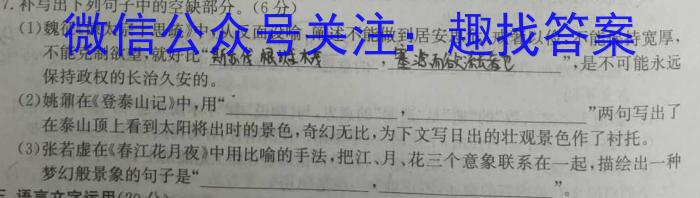 7.补写出下列句子中的空缺部分。(6分)
微信公众号关注：趣找答案
(1)魏 中，人 反面设喻，阐述不能做到居安思 戒奢以 不能 持宽厚，
不能克制欲望，就好比“ 根 木茂，塞源而欲流 ”，是不可能永远
保持政权的长治久安的。
(2)姚鼐在《登泰山记》中，用“ ， ”两句写出了
在泰山顶上看到太阳将出时的景色，奇幻无比，为下文写日出的壮观景色作了衬托。
(3)张若虚在《春江花月夜》中用比喻的手法，把江、月、花三个意象联系在一起，描绘出一种
梦幻般景象的句子是“ ， ”。
三、语言文字运用(20分)